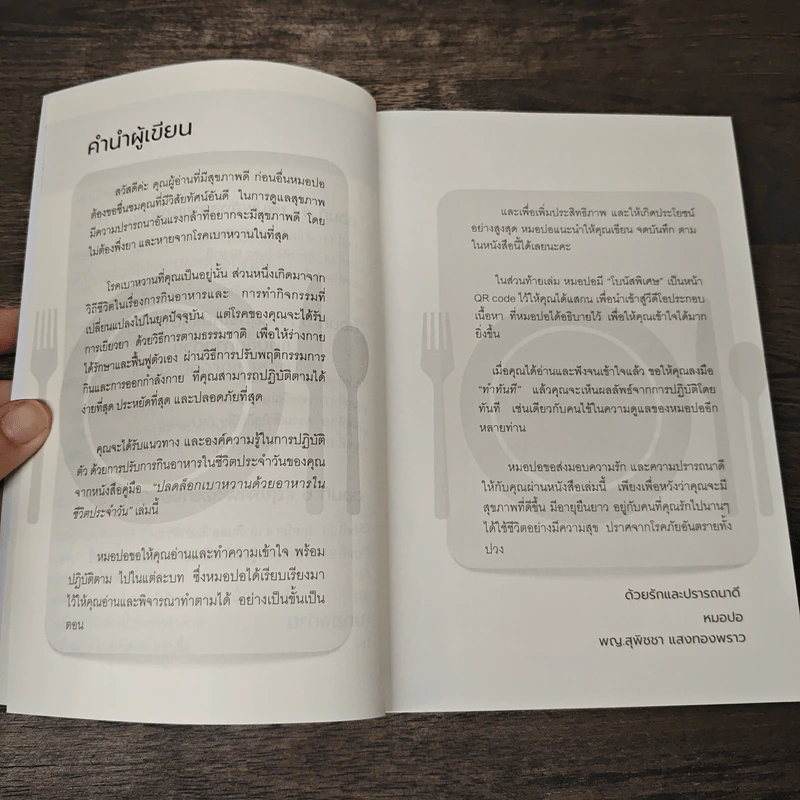 คำนำผู้เขียน
สวัสดีค่ะ คุณผู้อ่านที่มีสุขภาพดี ก่อนอื่นหมอปอ
ต้องขอชื่นชมคุณที่มีวิสัยทัศน์อันดี ในการดูแลสุขภาพ
มีความปรารถนาอันแรงกล้าที่อยากจะมีสุขภาพดี โดย
ไม่ต้องพึ่งยา และหายจากโรคเบาหวานในที่สุด
โรคเบาหวานที่คุณเป็นอยู่นั้น ส่วนหนึ่งเกิดมาจาก
วิถีชีวิตในเรื่องการกินอาหารและ การทำกิจกรรมที่
เปลี่ยนแปลงไปในยุคปัจจุบัน แต่โรคของคุณจะได้รับ
การเยียวยา ด้วยวิธีการตามธรรมชาติ เพื่อให้ร่างกาย
ได้รักษาและฟื้นฟูตัวเอง ผ่านวิธีการปรับพฤติกรรมการ
กินและการออกกำลังกาย ที่คุณสามารถปฏิบัติตามได้
ง่ายที่สุด ประหยัดที่สุด และปลอดภัยที่สุด
คุณจะได้รับแนวทาง และองค์ความรู้ในการปฏิบัติ
ตัว ด้วยการปรับการกินอาหารในชีวิตประจำวันของคุณ
จากหนังสือคู่มือ "ปลดล็อกเบาหวานด้วยอาหารใน
ชีวิตประจำวัน" เล่มนี้
หมอปอขอให้คุณอ่านและทำความเข้าใจ พร้อม
ปฏิบัติตาม ไปในแต่ละบท ซึ่งหมอปอได้เรียบเรียงมา
ไว้ให้คุณอ่านและพิจารณาทำตามได้ อย่างเป็นขั้นเป็น
ตอน
และเพื่อเพิ่มประสิทธิภาพ และให้เกิดประโยชน์
อย่างสูงสุด หมอปอแนะนำให้คุณเขียน จดบันทึก ตาม
ในหนังสือนี้ได้เลยนะคะ
ในส่วนท้ายเล่ม หมอปอมี "โบนัสพิเศษ" เป็นหน้า
QR code ไว้ให้คุณได้แสกน เพื่อนำเข้าสู่วีดีโอประกอบ
เนื้อหา ที่หมอปอได้อธิบายไว้ เพื่อให้คุณเข้าใจได้มาก
ยิ่งขึ้น
เมื่อคุณได้อ่านและฟังจนเข้าใจแล้ว ขอให้คุณลงมือ
"ทำทันที" แล้วคุณจะเห็นผลลัพธ์จากการปฏิบัติโดย
ทันที เช่นเดียวกับคนไข้ในความดูแลของหมอปออีก
หลายท่าน
หมอปอขอส่งมอบความรัก และความปรารถนาดี
ให้กับคุณผ่านหนังสือเล่มนี้ เพียงเพื่อหวังว่าคุณจะมี
สุขภาพที่ดีขึ้น มีอายุยืนยาว อยู่กับคนที่คุณรักไปนานๆ
ได้ใช้ชีวิตอย่างมีความสุข ปราศจากโรคภัยอันตรายทั้ง
ปวง
ด้วยรักและปรารถนาดี
หมอปอ
พญ.สุพิชชา แสงทองพราว